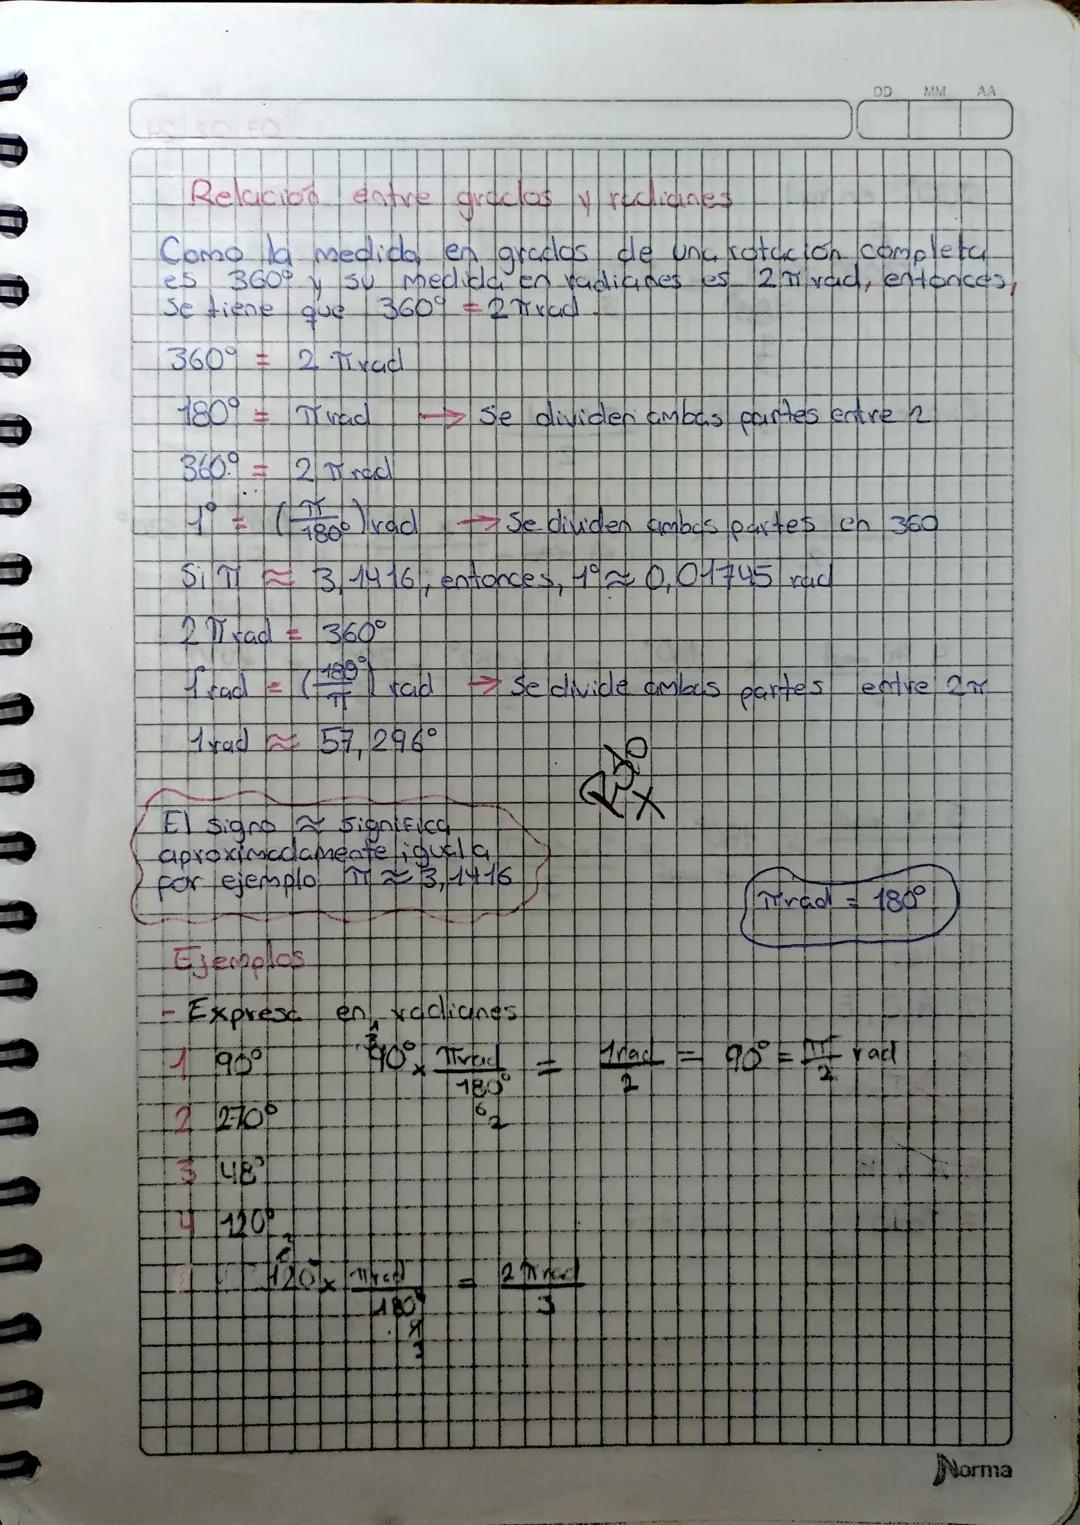 DD MM AA
Relación entre grados y radianes
Como la medida en grados de una rotación completa
es 360° y su medida en radianes es 2π rad, entonces,
se tiene que 360° = 2π rad.
360° = 2 π rad
180° = π rad → Se dividen ambas partes entre 2
360° = 2 π rad
1° = (π/180°) rad → Se dividen ambas partes en 360
Si π ≈ 3,1416, entonces, 1° ≈ 0,01745 rad
2 π rad = 360°
1 rad = (180°/π) rad → Se divide ambas partes entre 2π
1 rad ≈ 57,296°
El signo ≈ significa
aproximadamente igual a
por ejemplo π ≈ 3,1416
π rad = 180°
Ejemplos
- Expresa en radianes
1 90° 90° x π rad/180° = 1 rad/2 = 90° = π/2 rad
2 270°
3 48°
4 120°
120° x π rad/180° = 2 π rad/3
Norma